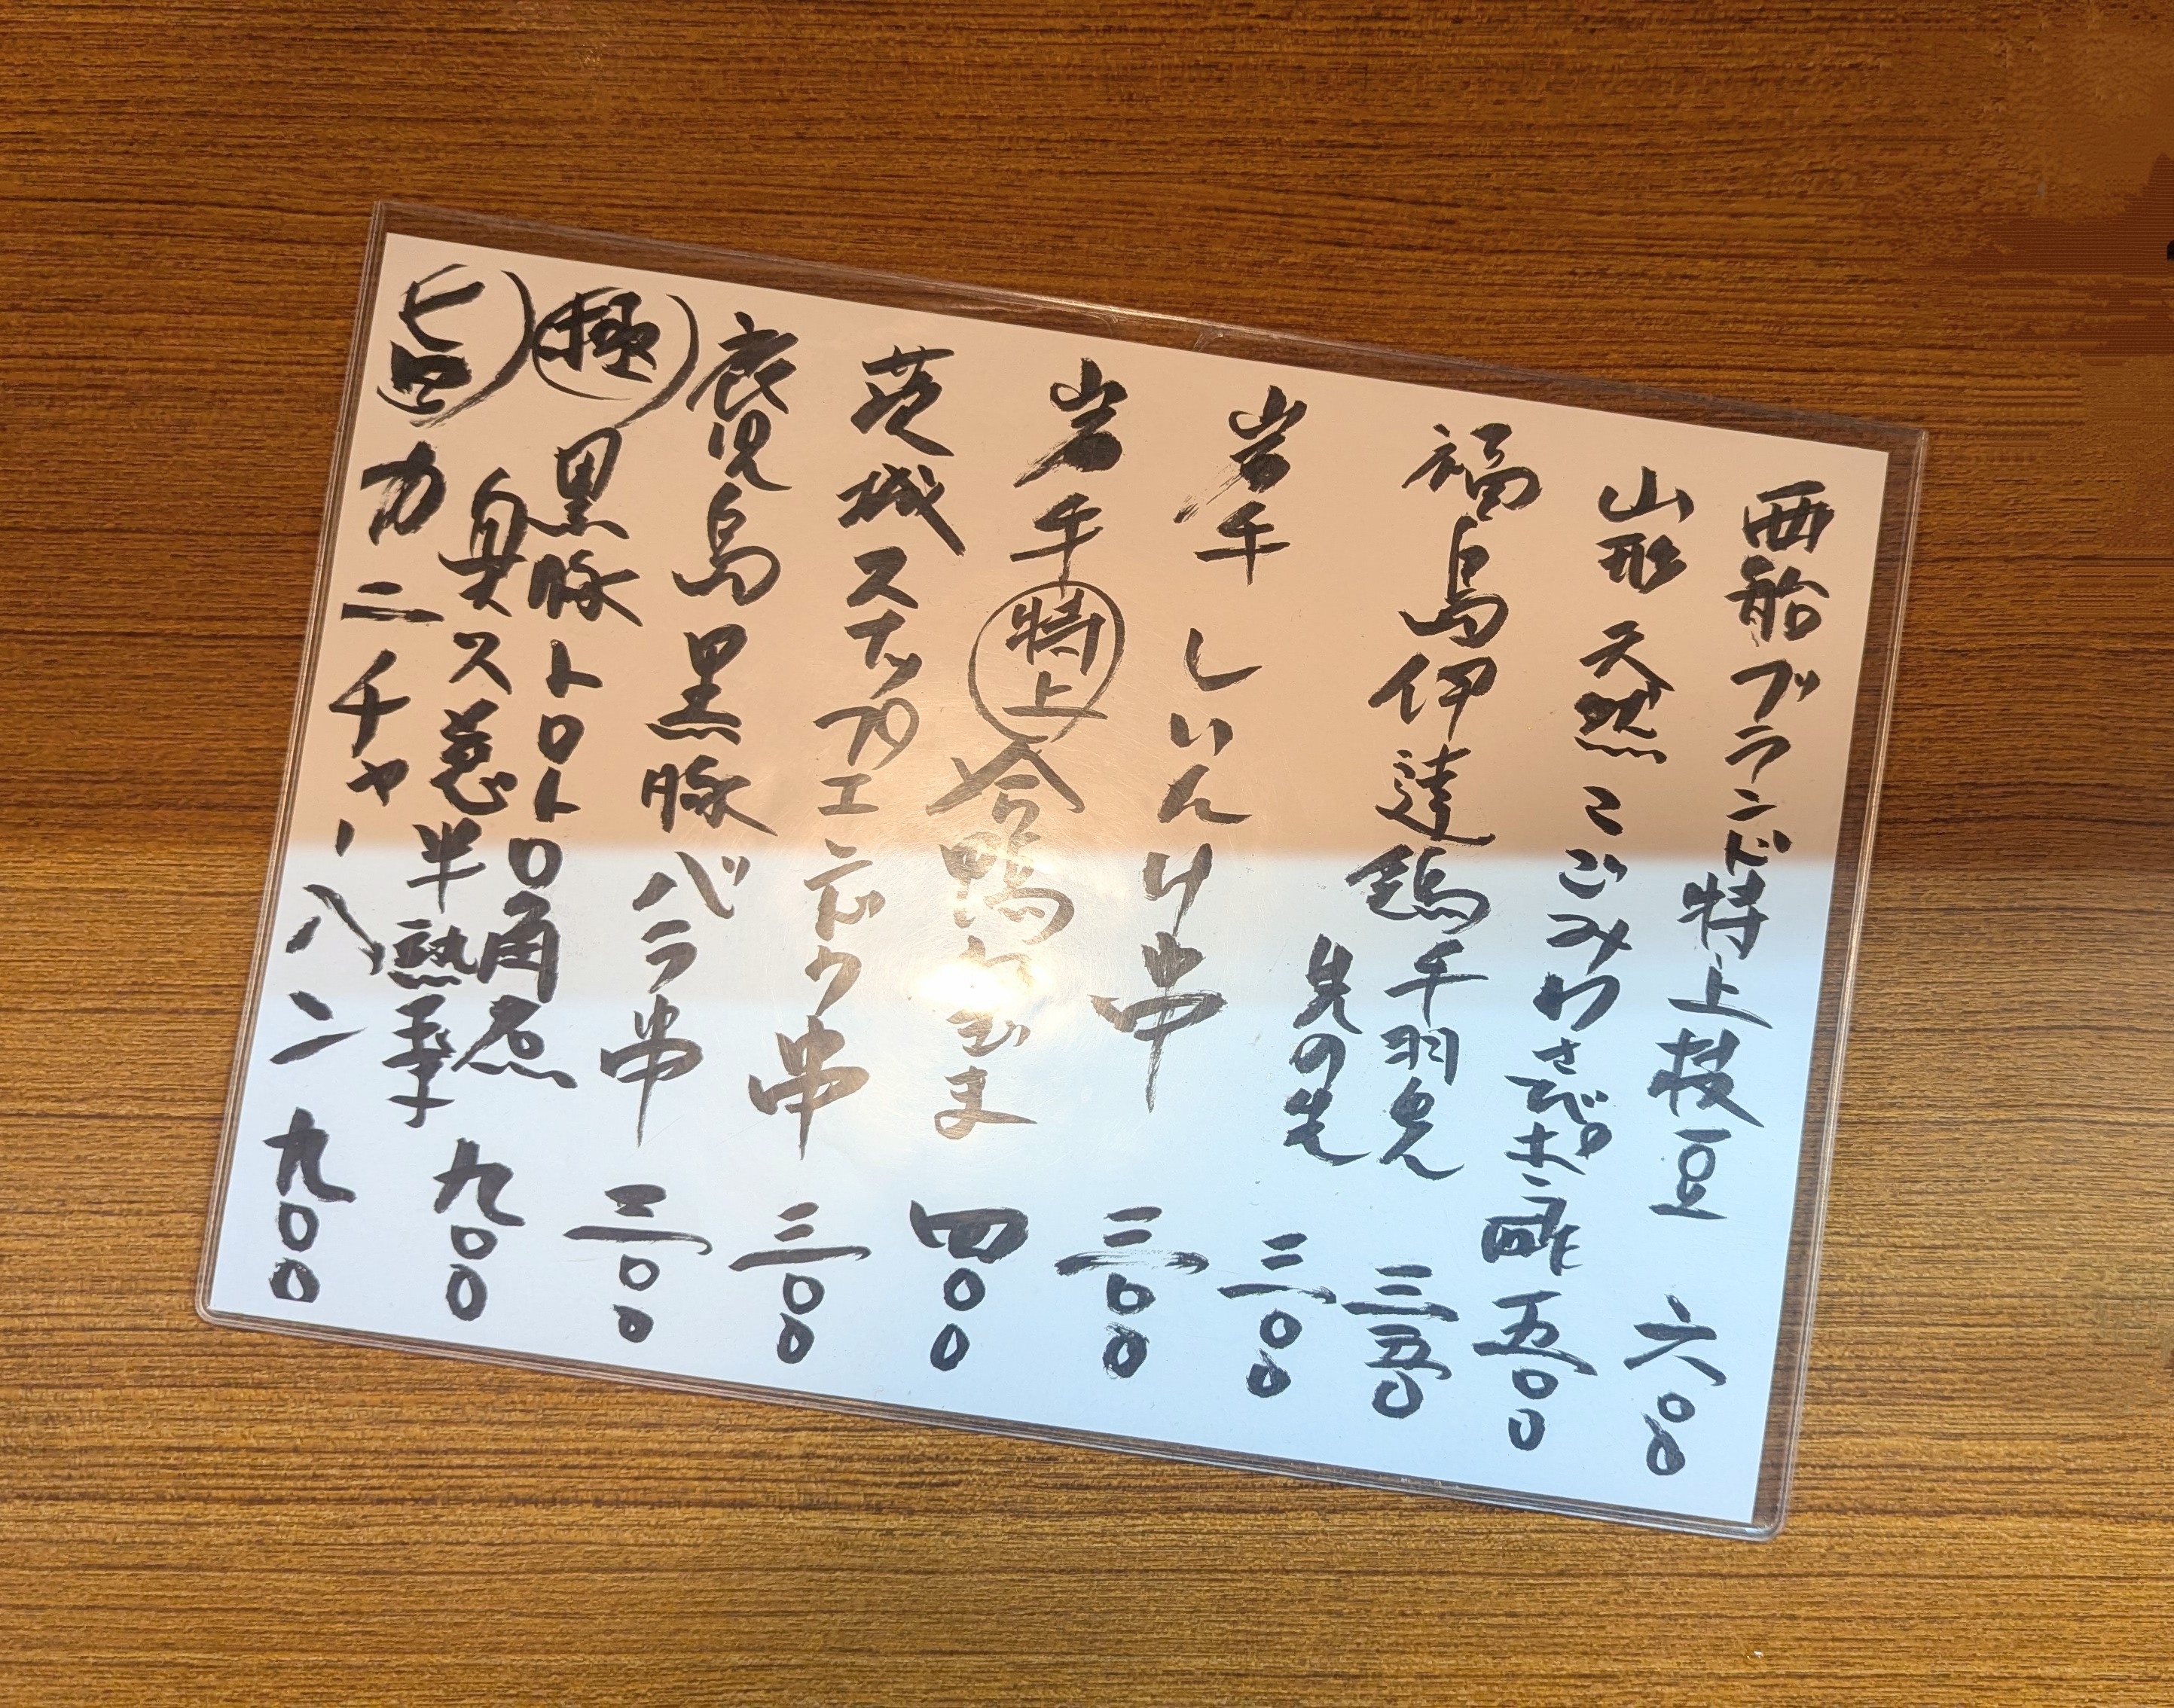 西船ブランド特上枝豆 六〇〇
山形 天然こごみわさびポン酢 五〇〇
福島伊達鶏手羽先 三五〇
先の先 三〇〇
岩手 しいたけ串 三〇〇
岩手 特上 合鴨つくま 四〇〇
茨城スナップエンドウ串 三〇〇
鹿児島黒豚バラ串 三〇〇
極 黒豚トロトロ角煮
臭ス葱半熟玉子 九〇〇
旨 カニチャーハン 九〇〇